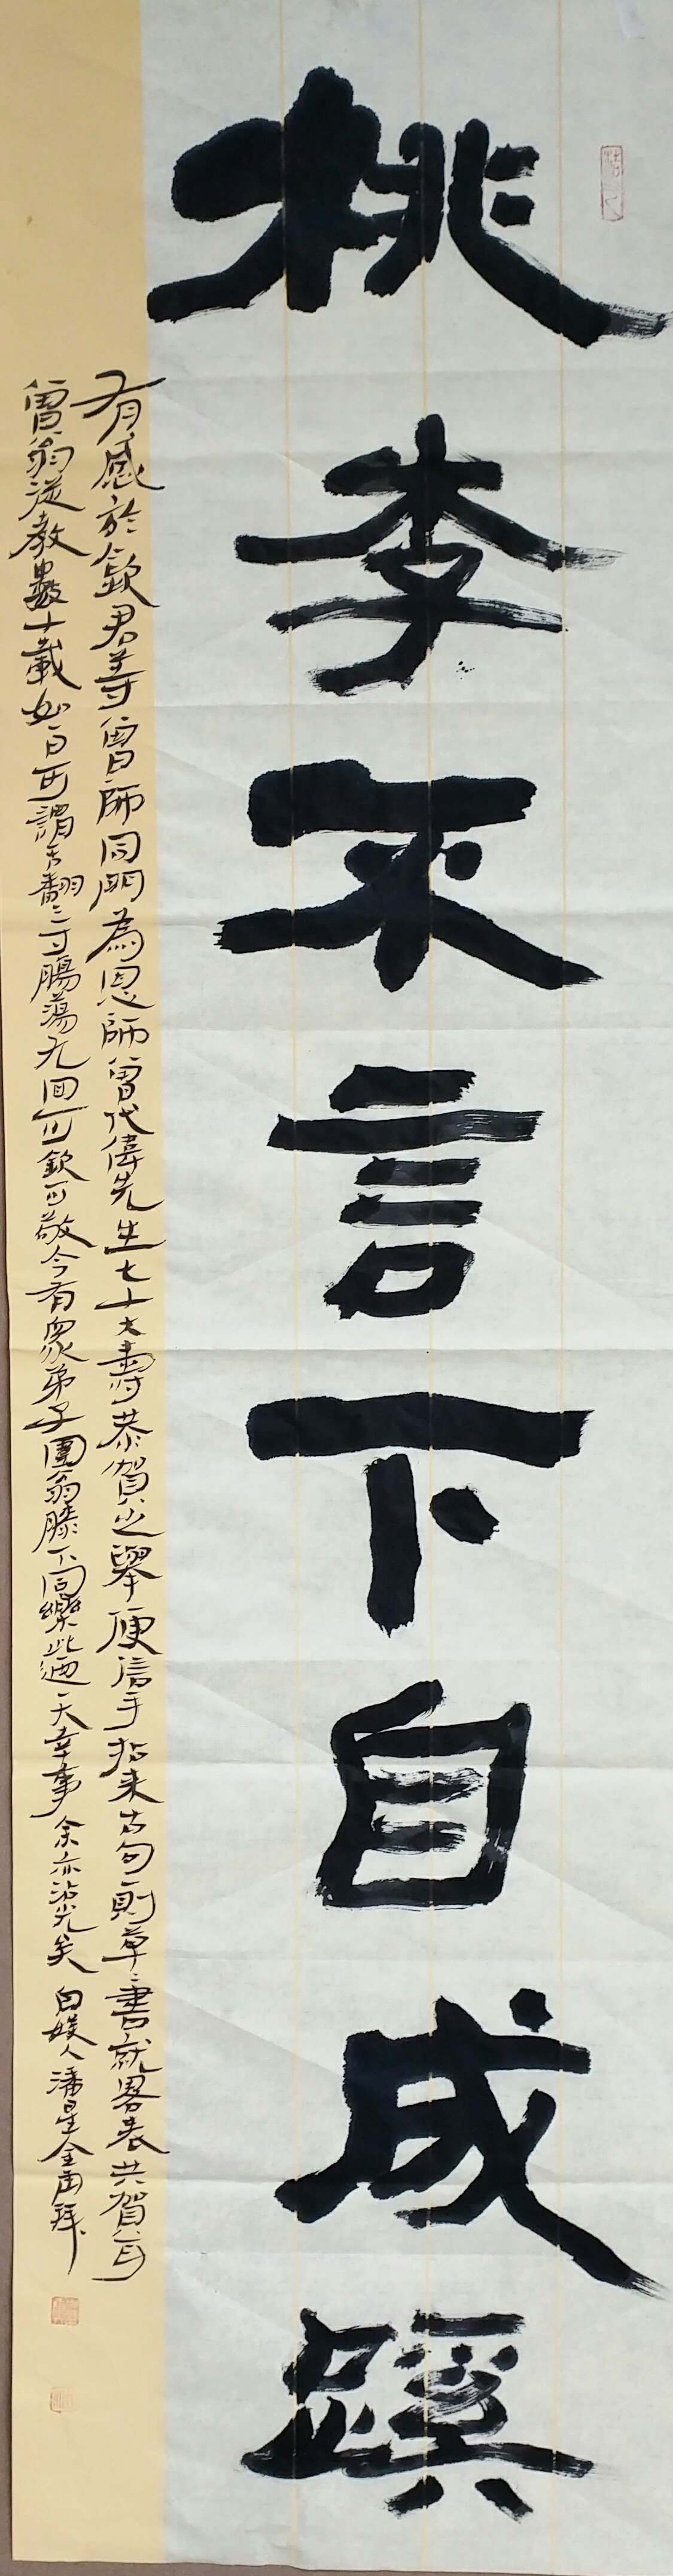 桃李不言下自成蹊
有感於欽君等曾師同門為恩師曾代偉先生七十大壽恭賀之舉便信手拈来古句一則草草書就畧表共賀耳
曾翁従教數十載如一日可謂舌翻三寸腸蕩九回可欽可敬今有眾弟子團翁膝下同樂此迺一大幸事余亦沾光矣 白娱人潘星全再拜